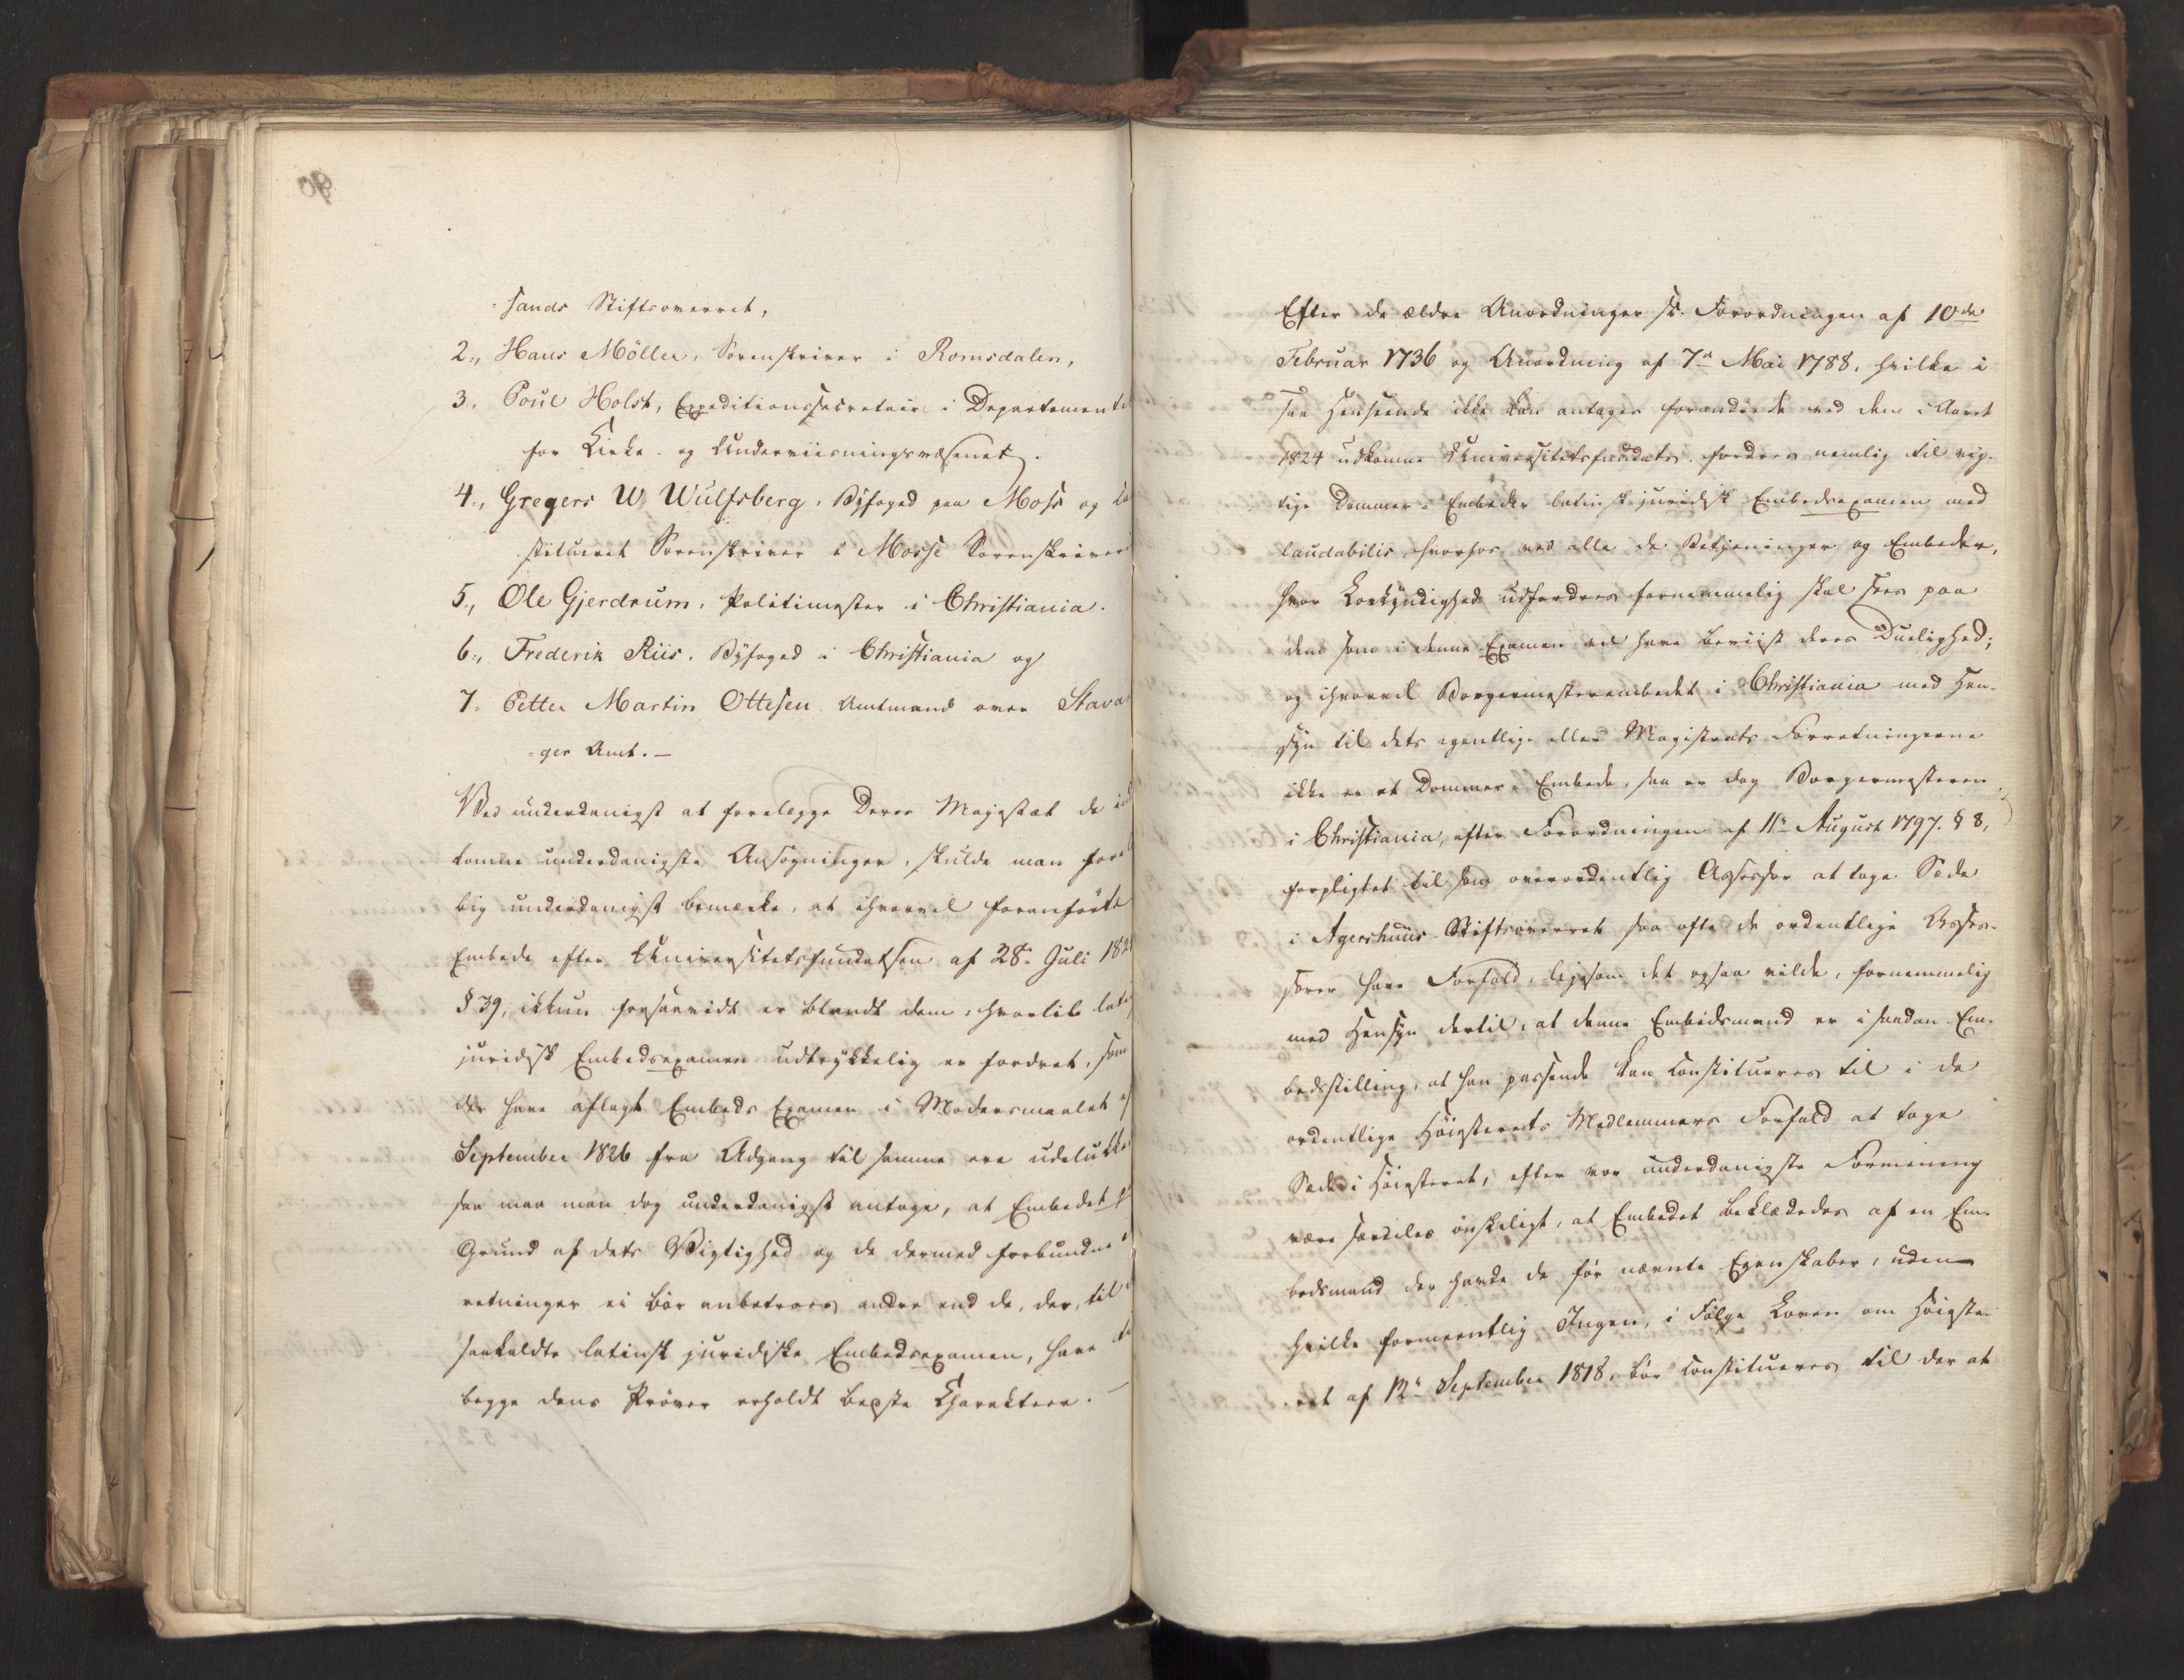 sands Stiftsoverret,
2., Hans Möller, Sorenskriver i Romsdalen,
3. Poul Holst, Expeditionssecretair i Departementet
for Kirke- og Underviisningsvæsenet.
4., Gregers W. Wulfsberg, Byfoged paa Moss og
stitueret Sorenskriver i Mosse Sorenskriver
5., Ole Gjerdrum, Politimester i Christiania.
6., Frederik Riis, Byfoged i Christiania og
7. Petter Martin Ottesen Amtmand over Stavan
=ger Amt. —
Ved underdanigst at forelægge Deres Majestæt de ind
komne underdanigste Ansøgninger, skulde man forel
big underdanigst bemærke, at ihvorvel foranførte
Embede efter Universitetsfundatsen af 28. Juli 182
§ 39, ikkun forsaavidt er blandt dem, hvortil lati
juridisk Embedsexamen udtrykkelig er fordret, som
der have aflagt Embeds Examen i Modersmaalet ef
September 1826 fra Adgang til samme ere udelukke
saa maa man dog underdanigst antage, at Embedet p
Grund af dets Vigtighed og de dermed forbundne
retninger ei bør anbetroes andre end de, der, til
saakaldte latinsk juridiske Embedsexamen, have
begge dens Prøver erholdt bedste Charakteer. —
Efter de ældre Anordninger fr. Forordningen af 10de
Februar 1736 og Anordning af 7de Mai 1788, hvilke i
saa Henseende ikke kan antages forandrede ved den i Aaret
1824 udkomne Universitetsfundats, fordres nemlig til vig-
tige Dommer-Embeder latinsk juridisk Embedsexamen med
laudabilis, hvorhos ved alle de Betjeninger og Embeder,
hvor Lovkyndighed udfordres fornemmelig skal sees paa
dem som i denne Examen vel have beviist deres Duelighed;
og ihvorvel Borgermesterembedet i Christiania med Hen-
syn til dets egentlige eller Magistrats Forretningerne
ikke er et Dommer-Embede, saa er dog Borgermesteren
i Christiania, efter Forordningen af 11te August 1797. § 8,
forpligtet til som overordentlig Assessor at tage Sæde
i Agershuus Stiftsoverret saa ofte de ordentlige Asses-
sorer have Forfald, ligesom det ogsaa vilde, fornemmelig
med Hensyn dertil, at denne Embedsmand er i saadan Em-
bedsstilling, at han passende kan constitueres til i de
ordentlige Höiesterets Medlemmers Forfald at tage
Sæde i Höiesteret, efter vor underdanigste Formening
være særdeles önskeligt, at Embedet beklædedes af en Em-
bedsmand der havde de før nævnte Egenskaber, uden
hvilke formeentlig Ingen, i Følge Loven om Höieste-
ret af 12te September 1818, bör constitueres til der at